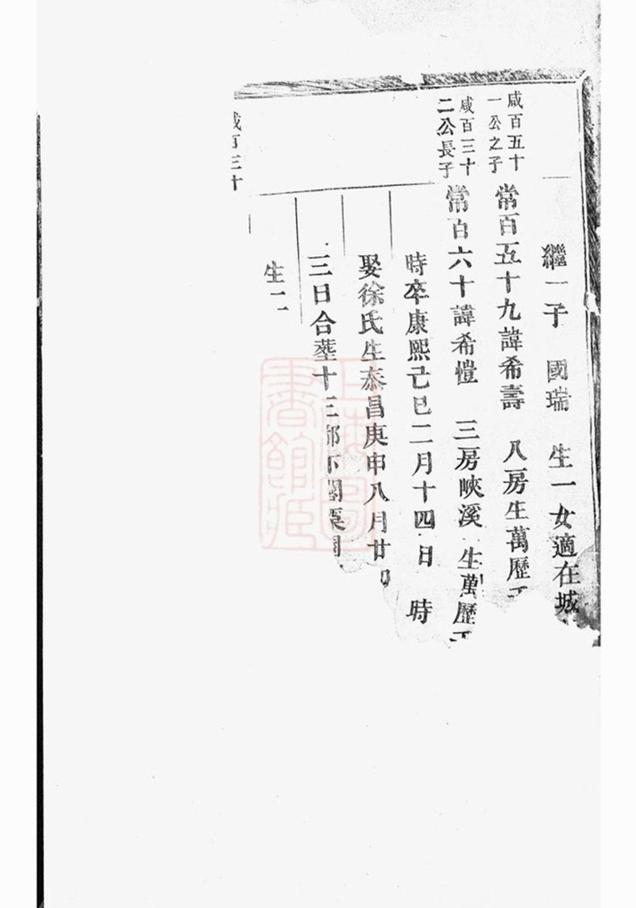 繼一子　國瑞　生一女適在城
咸百五十
一公之子
常百五十九諱希壽　八房生萬歷
咸百三十
二公長子
常百六十諱希愷　三房峽溪　生萬歷
時卒康熙己巳二月十四日　時
娶徐氏生泰昌庚申八月廿
三日合塟十三都下
生二
咸百三十
上海圖書館藏